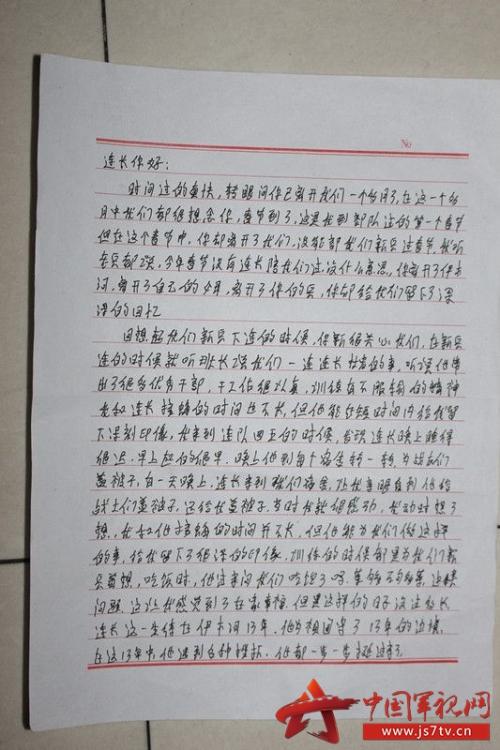 No
连长你好：
时间过的真快，转眼间你已离开我们一个多月了，在这一个多
月中我们都很想念你，春节到了，这是我到部队过的第一个春节
但在这个春节中，你却离开了我们，没能跟我们新兵过春节，我听
老兵都说，今年春节没有连长陪我们过，没什么意思，你离开了伊木
河，离开了自己的女儿，离开了你的兵，你却给我们留下了深
深的回忆
回想起我们新兵下连的时候，你都很关心我们，在新兵
连的时候就听排长说我们一连连长 的事，听说他带
出了很多优秀干部，干工作很认真，训练有不服输的精神
我和连长接触的时间也不长，但他能在短时间内给我留
下深刻印像，我来到连队 的时候，发现连长晚上睡得
很迟，早上起的很早，晚上他到每个宿舍转一转，为战士们
盖被子，有一天晚上，连长来到我们宿舍，让我亲眼看到他给
战士们盖被子，还给我盖被子，当时我就很感动，我动时想了
想，我和他接触的时间并不长，但他能为我们做这样
的事，给我留下了很深的印像，训练的时候都是为我们新
兵着想，吃饭时，他过来问我们吃饱了吗，菜够不够等 这样
问题，这让我感受到了在家幸福，但是这样的日子没过多长
连长这一生待在伊木河13年，他为祖国守了13年的边境，
在这13年中，他遇到各种挫折，他都一步一步挺过来了
中国军视网
www.js7tv.cn